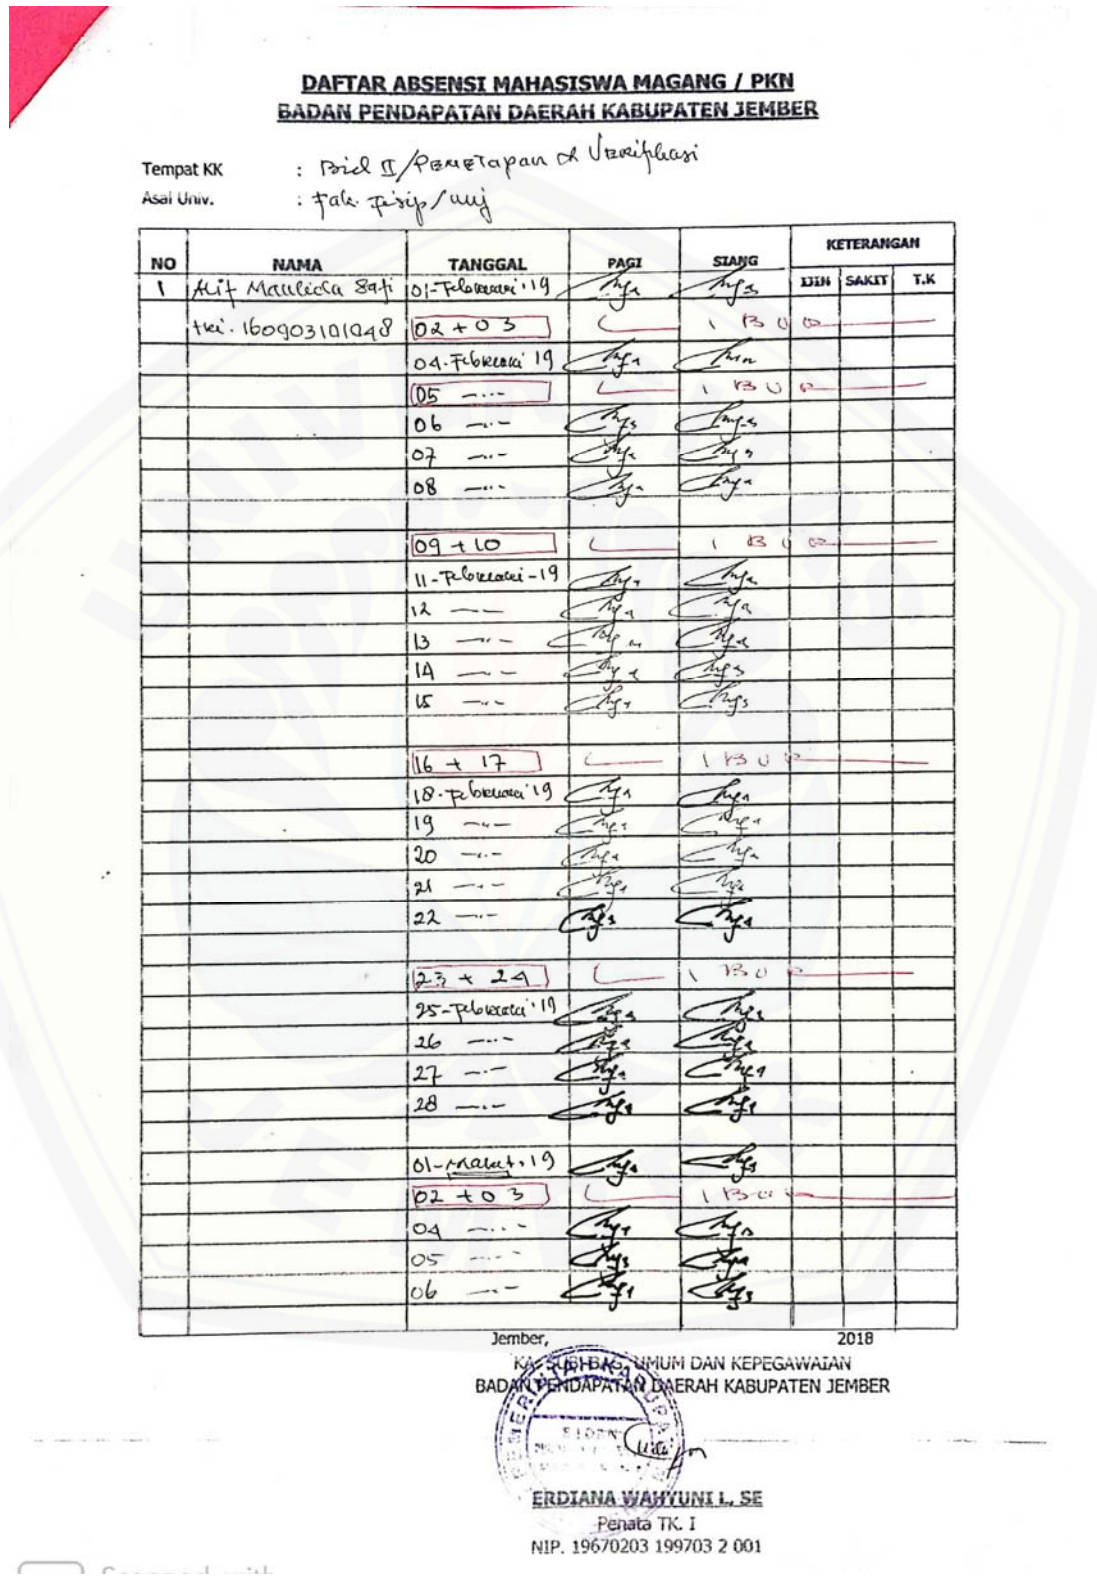 DAFTAR ABSENSI MAHASISWA MAGANG / PKN
BADAN PENDAPATAN DAERAH KABUPATEN JEMBER
Tempat KK : Bid II/Penetapan & Verifikasi
Asal Univ. : Fak. Fisip/unej
NO NAMA TANGGAL PAGI SIANG KETERANGAN
IJIN SAKIT T.K
1 Alif Maulida Safi 01-Februari'19
tri. 160903101048 02 + 03 L I B U R
04-Februari 19
05 L I B U R
06
07
08
09 + 10 L I B U R
11-Februari-19
12
13
14
15
16 + 17 L I B U R
18-Februari'19
19
20
21
22
23 + 24 L I B U R
25-Februari'19
26
27
28
01-Maret-19
02 + 03 L I B U R
04
05
06
Jember, 2018
KA. SUB BAG. UMUM DAN KEPEGAWAIAN
BADAN PENDAPATAN DAERAH KABUPATEN JEMBER
ERDIANA WAHYUNI L, SE
Penata TK. I
NIP. 19670203 199703 2 001